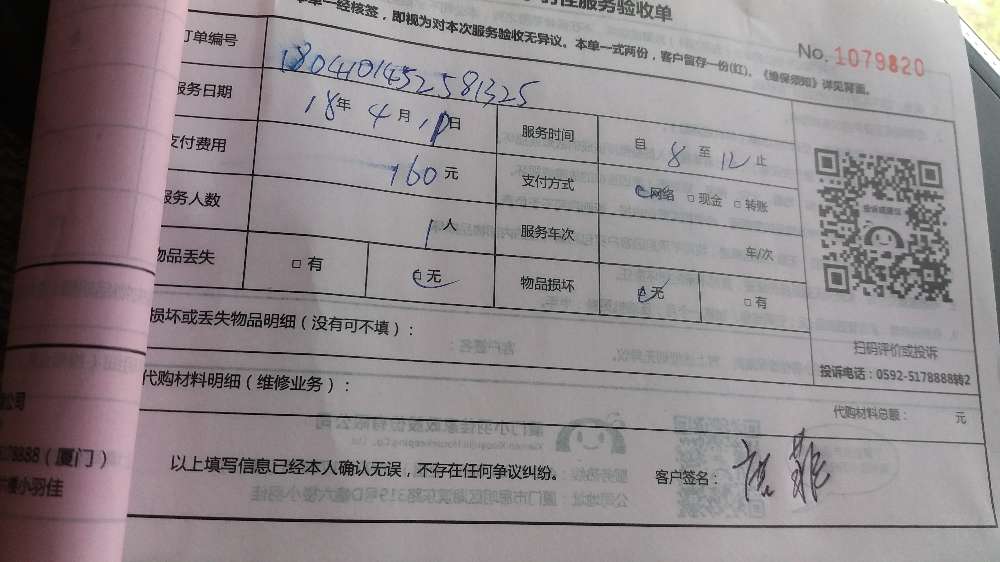 性服务验收单
单一经核签，即视为对本次服务验收无异议。本单一式两份，客户留存一份(红)。《维保须知》详见背面。
No. 1079820
订单编号 1804101452581325
服务日期 18年 4月 11日 服务时间 自 8 至 12 止
支付费用 160元 支付方式 网络 □ 现金 □ 转账
服务人数 1人 服务车次 车/次
物品丢失 □ 有 □ 无 物品损坏 □ 无 □ 有
扫码评价或投诉
投诉电话：0592-5178888转2
损坏或丢失物品明细（没有可不填）：
代购材料明细（维修业务）：
代购材料总额： 元
以上填写信息已经本人确认无误，不存在任何争议纠纷。
客户签名：
公司
（厦门）
楼小羽佳